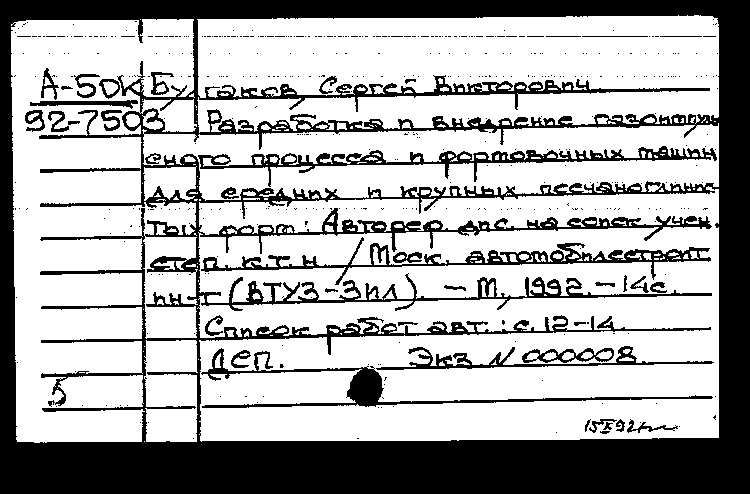 А-50к Булгаков, Сергей Викторович
92-7503 Разработка и внедрение газоимпуль
сного процесса и формовочных машин
для средних и крупных песчаноглинис-
тых форм: Автореф. дис. на соиск. учен.
степ. к.т.н. / Моск. автомобилестроит.
ин-т (ВТУЗ-ЗИЛ). – М., 1992. – 14с.
Список работ авт.: с. 12-14.
ДСП. Экз N 000008.
5